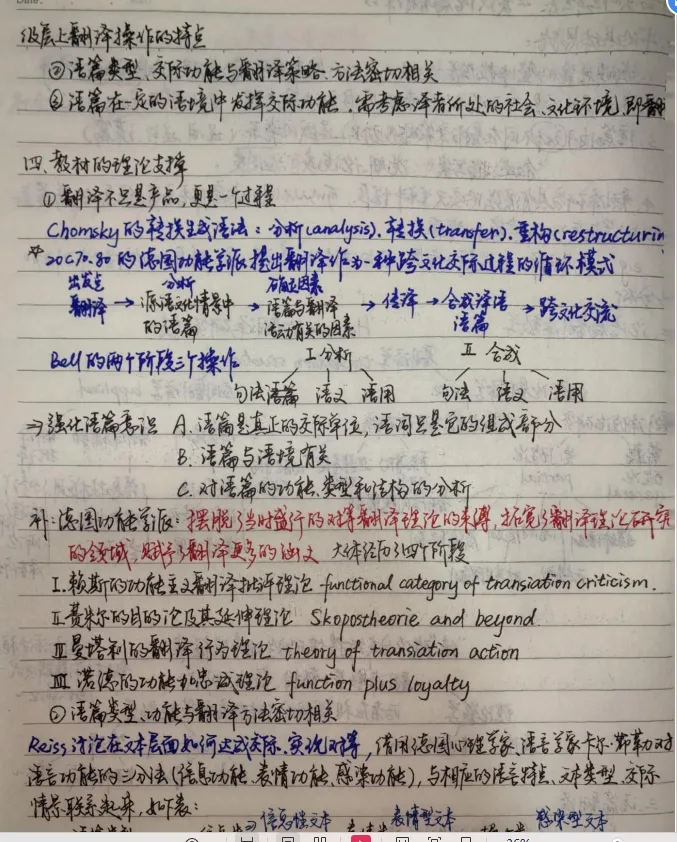 级层上翻译操作的特点
②语篇类型、交际功能与翻译策略、方法密切相关
③语篇在一定的语境中发挥交际功能,需考虑译者所处的社会、文化环境,即翻
四、教材的理论支撑
①翻译不只是产品,更是一个过程
Chomsky的转换生成语法:分析(analysis).转换(transfer).重构(restructurin
20C70.80的德国功能学派提出翻译作为一种跨文化交际过程的循环模式
出发点 分析 确定因素
翻译→源语文化情景中→语篇与翻译→传译→合成译语→跨文化交流
的语篇 活动有关的因素 语篇
Bell的两个阶段三个操作 Ⅰ分析 Ⅱ 合成
句法语篇 语义 语用 句法 语义 语用
⇒强化语篇意识 A.语篇是真正的交际单位,语词只是它的组成部分
B.语篇与语境有关
C.对语篇的功能、类型和结构的分析
补:德国功能学派:摆脱了当时盛行的对等翻译理论的束缚,拓宽了翻译理论研究
的领域,赋予了翻译更多的涵义 大体经历了四个阶段
Ⅰ.赖斯的功能主义翻译批评理论 functional category of transiation criticism.
Ⅱ.费米尔的目的论及其延伸理论 Skopostheorie and beyond.
Ⅲ曼塔利的翻译行为理论 theory of transiation action
Ⅲ 诺德的功能加忠诚理论 function plus loyalty
②语篇类型、功能与翻译方法密切相关
Reiss讨论在文本层面如何达成交际、实现对等,借用德国心理学家、语言学家卡尔·布革力对
语言功能的三分法(信息功能、表情功能、感染功能),与相应的语言特点、文本类型、交际
情景联系起来,如下表:
信息性文本 表情型文本 感染型文本